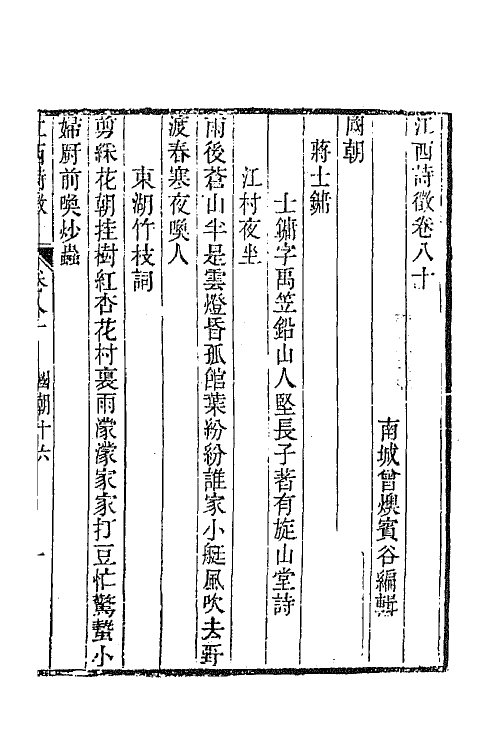 江西詩徵卷八十
南城曾燠賓谷編輯
國朝
蔣士鏞
士鏞字禹笠鉛山人堅長子著有旋山堂詩
江村夜坐
雨後蒼山半是雲燈昏孤館葉紛紛誰家小艇風吹去野
渡春寒夜喚人
東湖竹枝詞
剪綵花朝挂樹紅杏花村裏雨濛濛家家打豆忙驚蟄小
婦厨前喚炒蟲
江西詩徵
卷八十
國朝十六
一